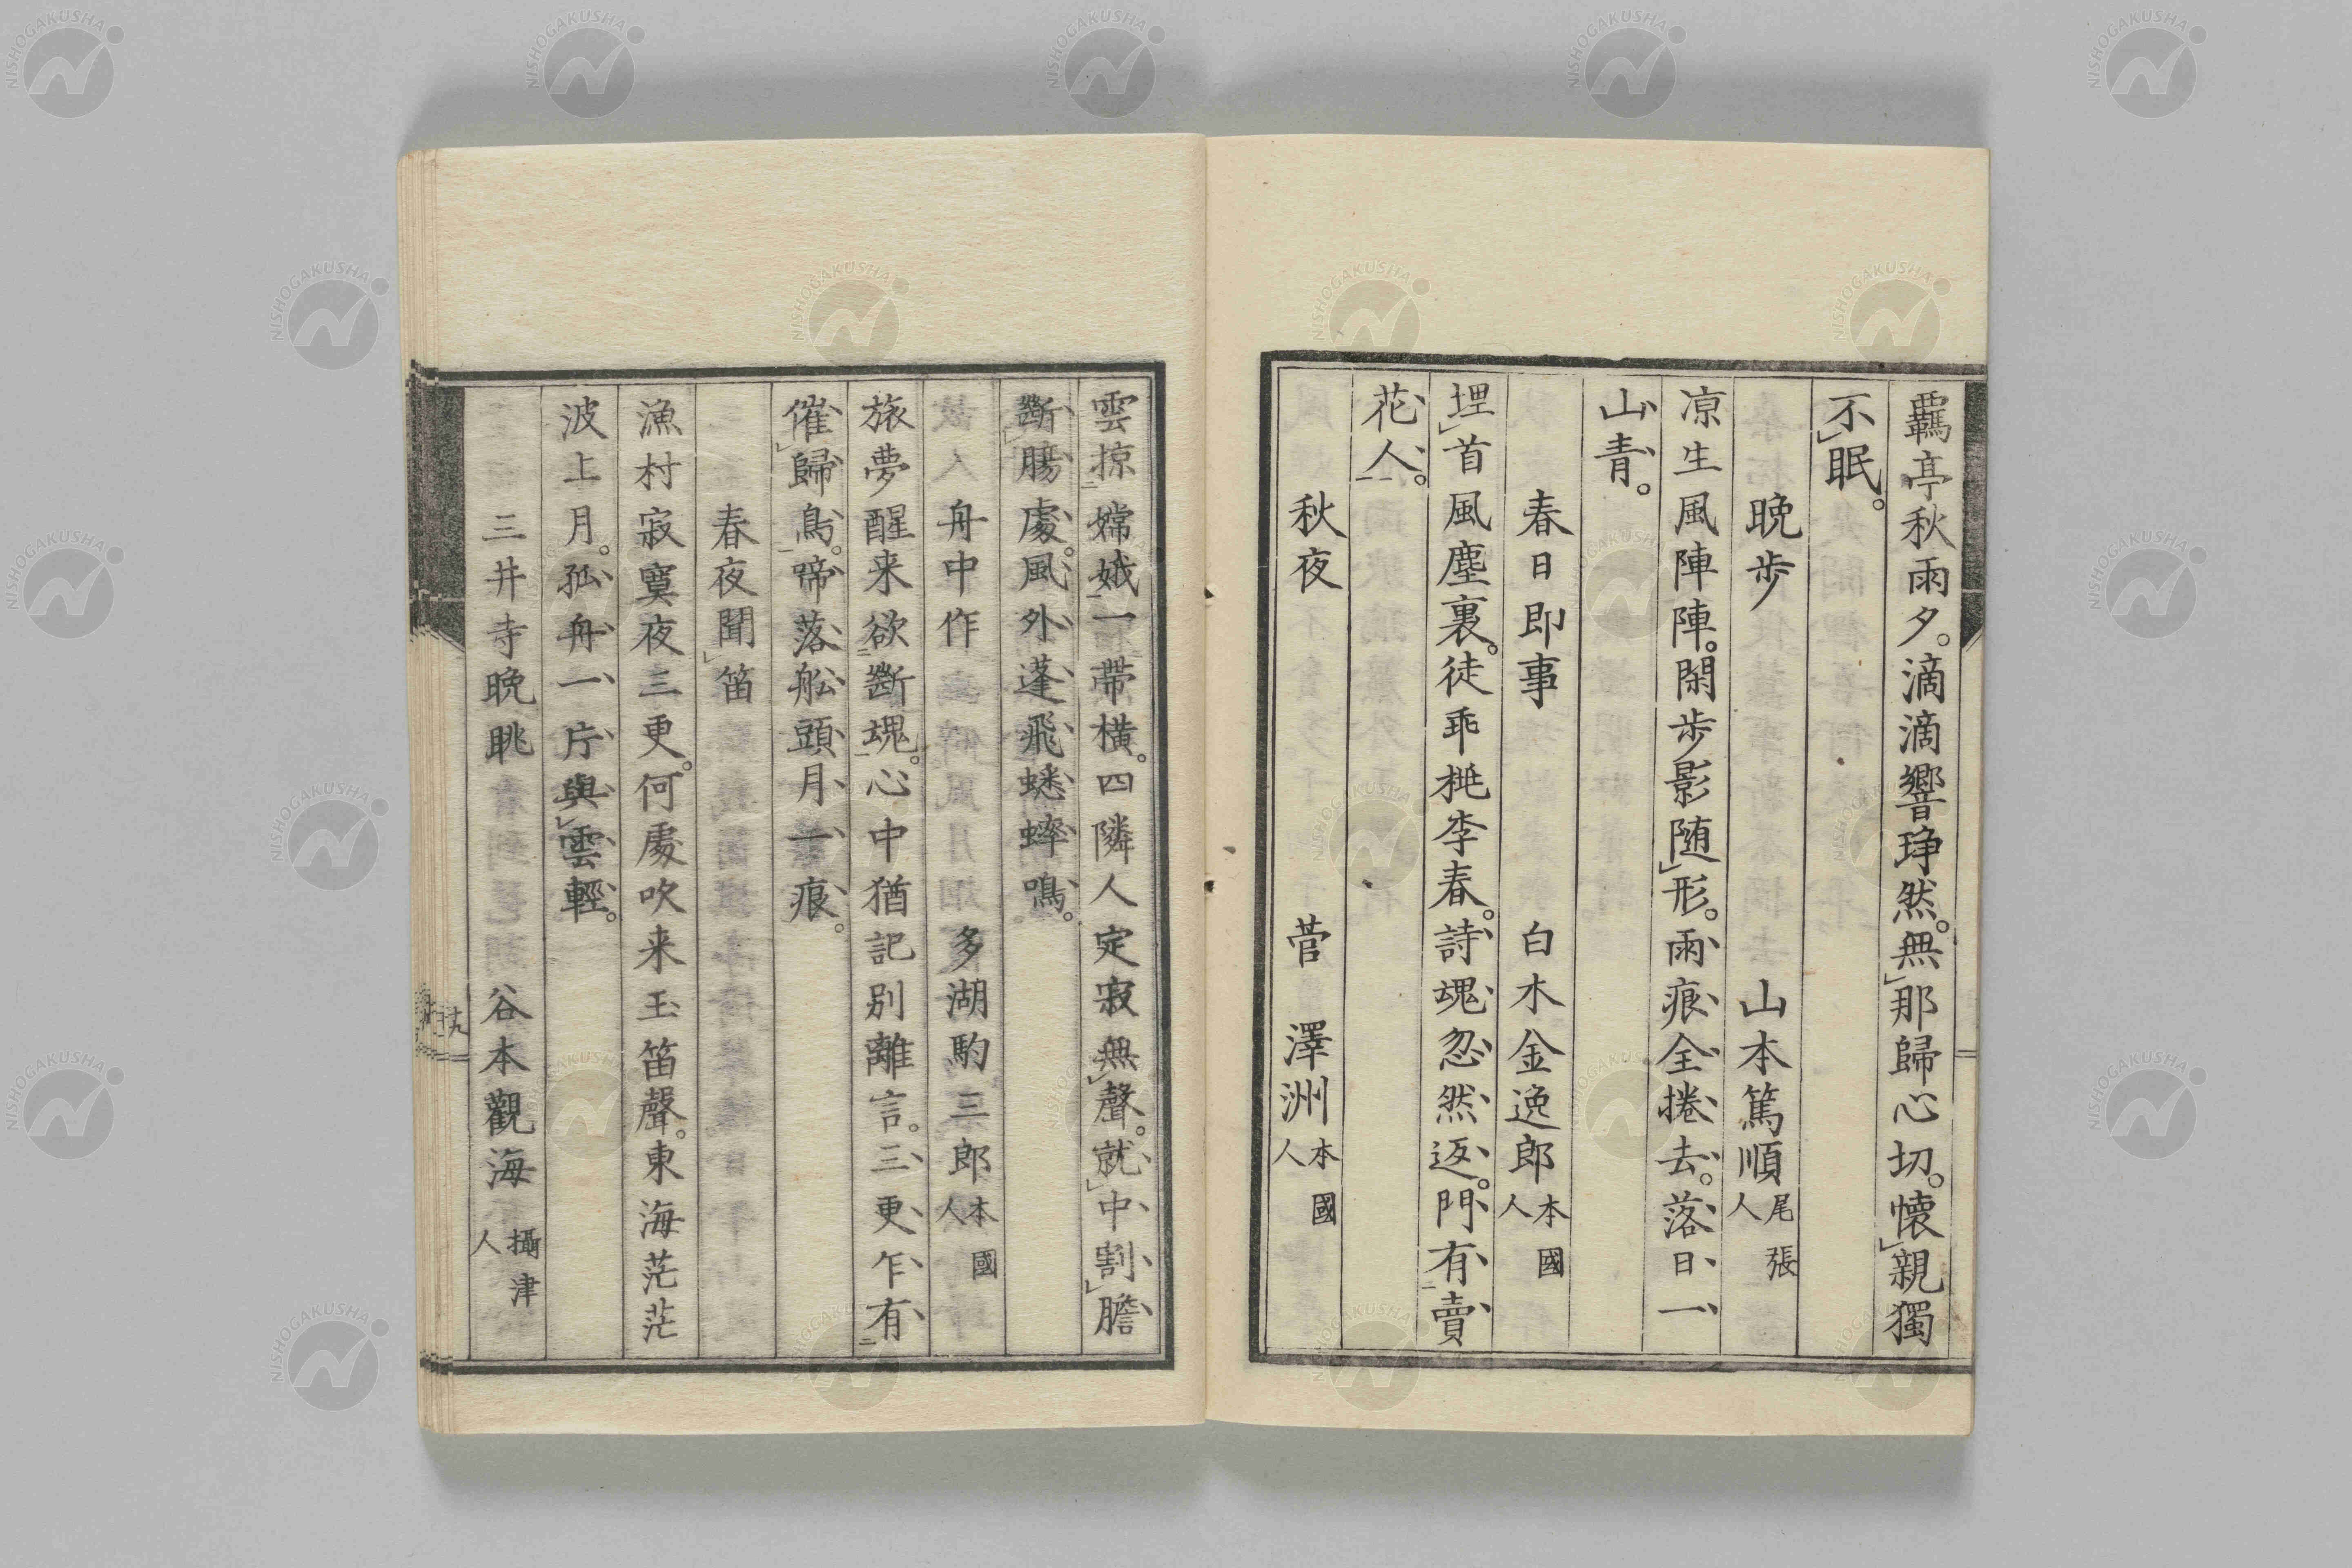 羈亭秋雨夕。滴滴響琤然。無那歸心切。懷親獨
不眠。
晩步　山本篤順 尾張人
凉生風陣陣。閑步影随形。雨痕全捲去。落日一
山青。
春日即事　白木金逸郎 本國人
埋首風塵裏。徒乖桃李春。詩魂忽然返。門有賣
花人。
秋夜　菅澤洲 本國人
雲掠嫦娥一帶橫。四隣人定寂無聲。就中割膽
斷腸處。風外蓬飛蟋蟀鳴。
舟中作　多湖駒三郎 本國人
旅夢醒来欲斷魂。心中猶記别離言。三更乍有
催歸鳥。啼落船頭月一痕。
春夜聞笛
漁村寂寞夜三更。何處吹来玉笛聲。東海茫茫
波上月。孤舟一片與雲輕。
三井寺晩眺　谷本觀海 攝津人
NISHOGAKUSHA